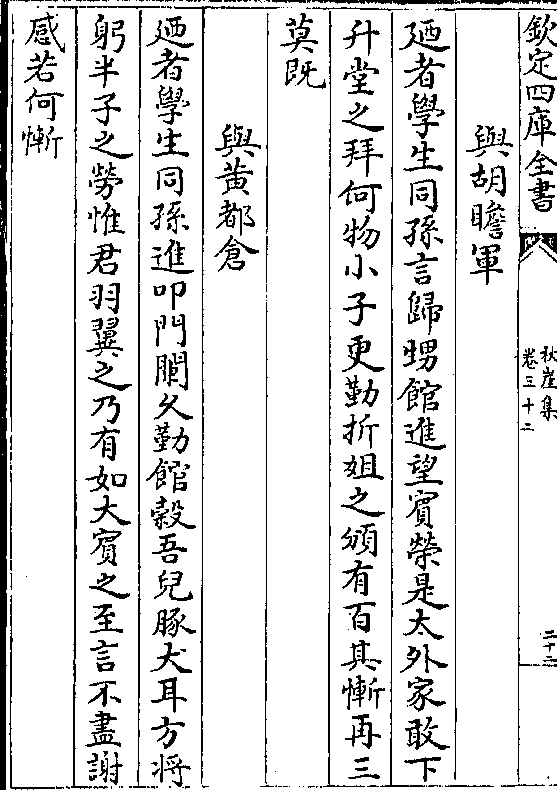 欽定四庫全書
秋崖集
卷三十二
二十二
與胡瞻軍
廼者學生同孫言歸甥館進望賓榮是太外家敢下
升堂之拜何物小子更勤折俎之頒有百其慚再三
莫既
與黄都倉
廼者學生同孫進叩門闌久勤館穀吾兒豚犬耳方將
躬半子之勞惟君羽翼之乃有如大賓之至言不盡謝
感若何慚